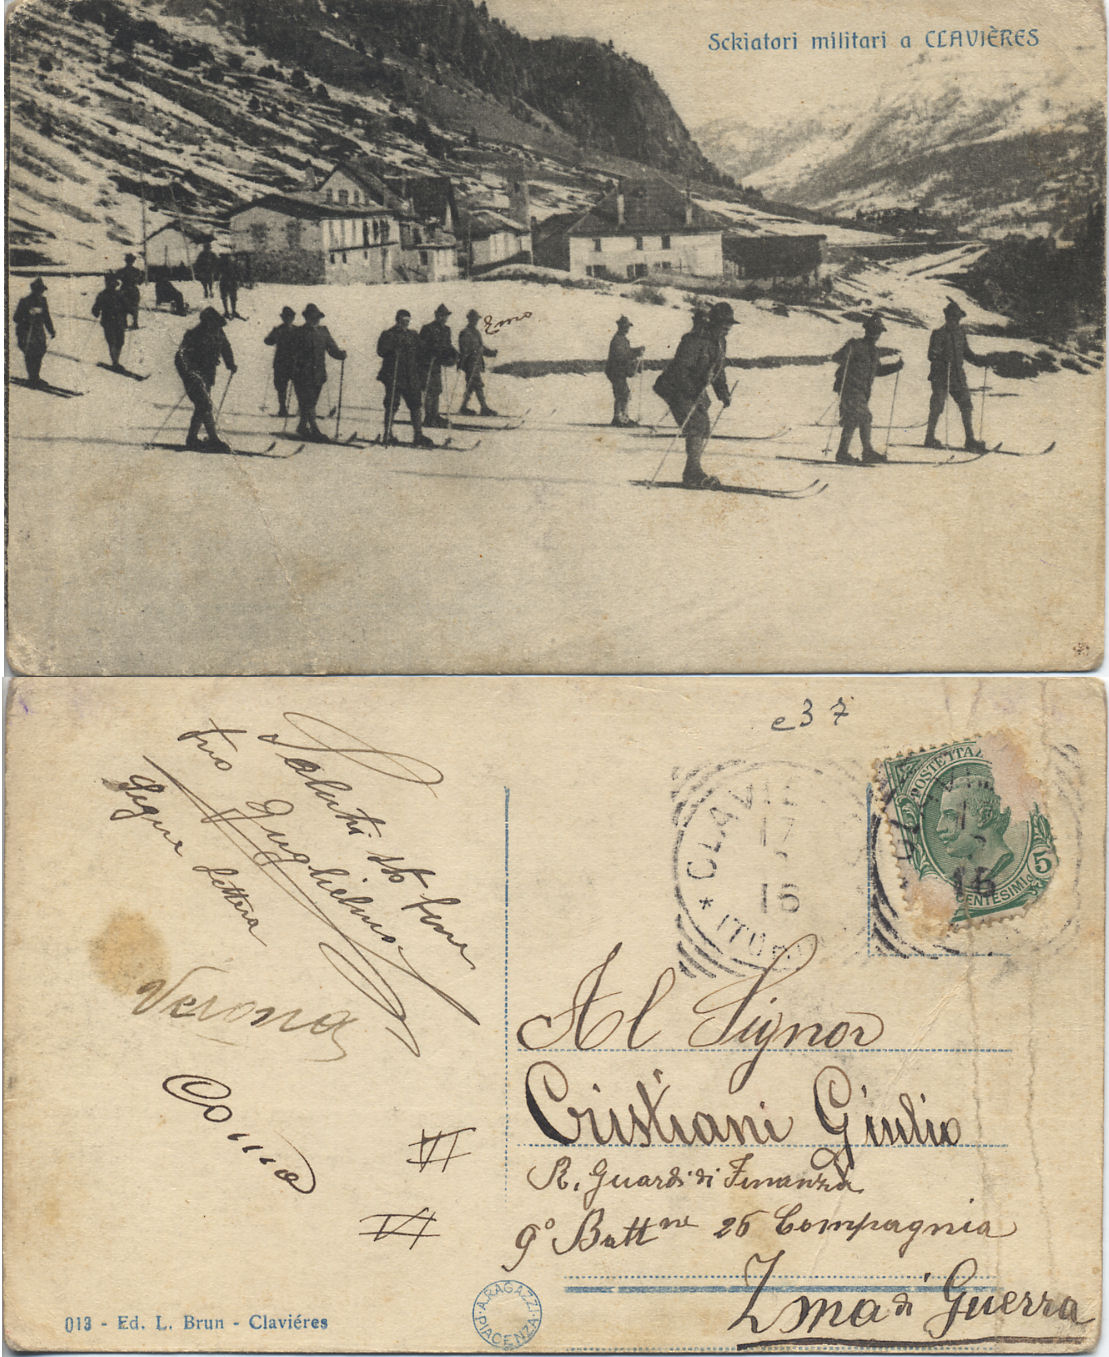 Sckiatori militari a CLAVIÈRES
e 37
Saluti
tuo
Guglielmo
Segue lettera
Verona
VI
VI
* CLAVI
17
15
POSTE ITA
CENTESIMI 5
15
Al Signor
Cristiani Giulio
R. Guardi di Finanza
9° Battne 26 Compagnia
Zma di Guerra
013 - Ed. L. Brun - Claviéres
A. RAGAZZI
PIACENZA